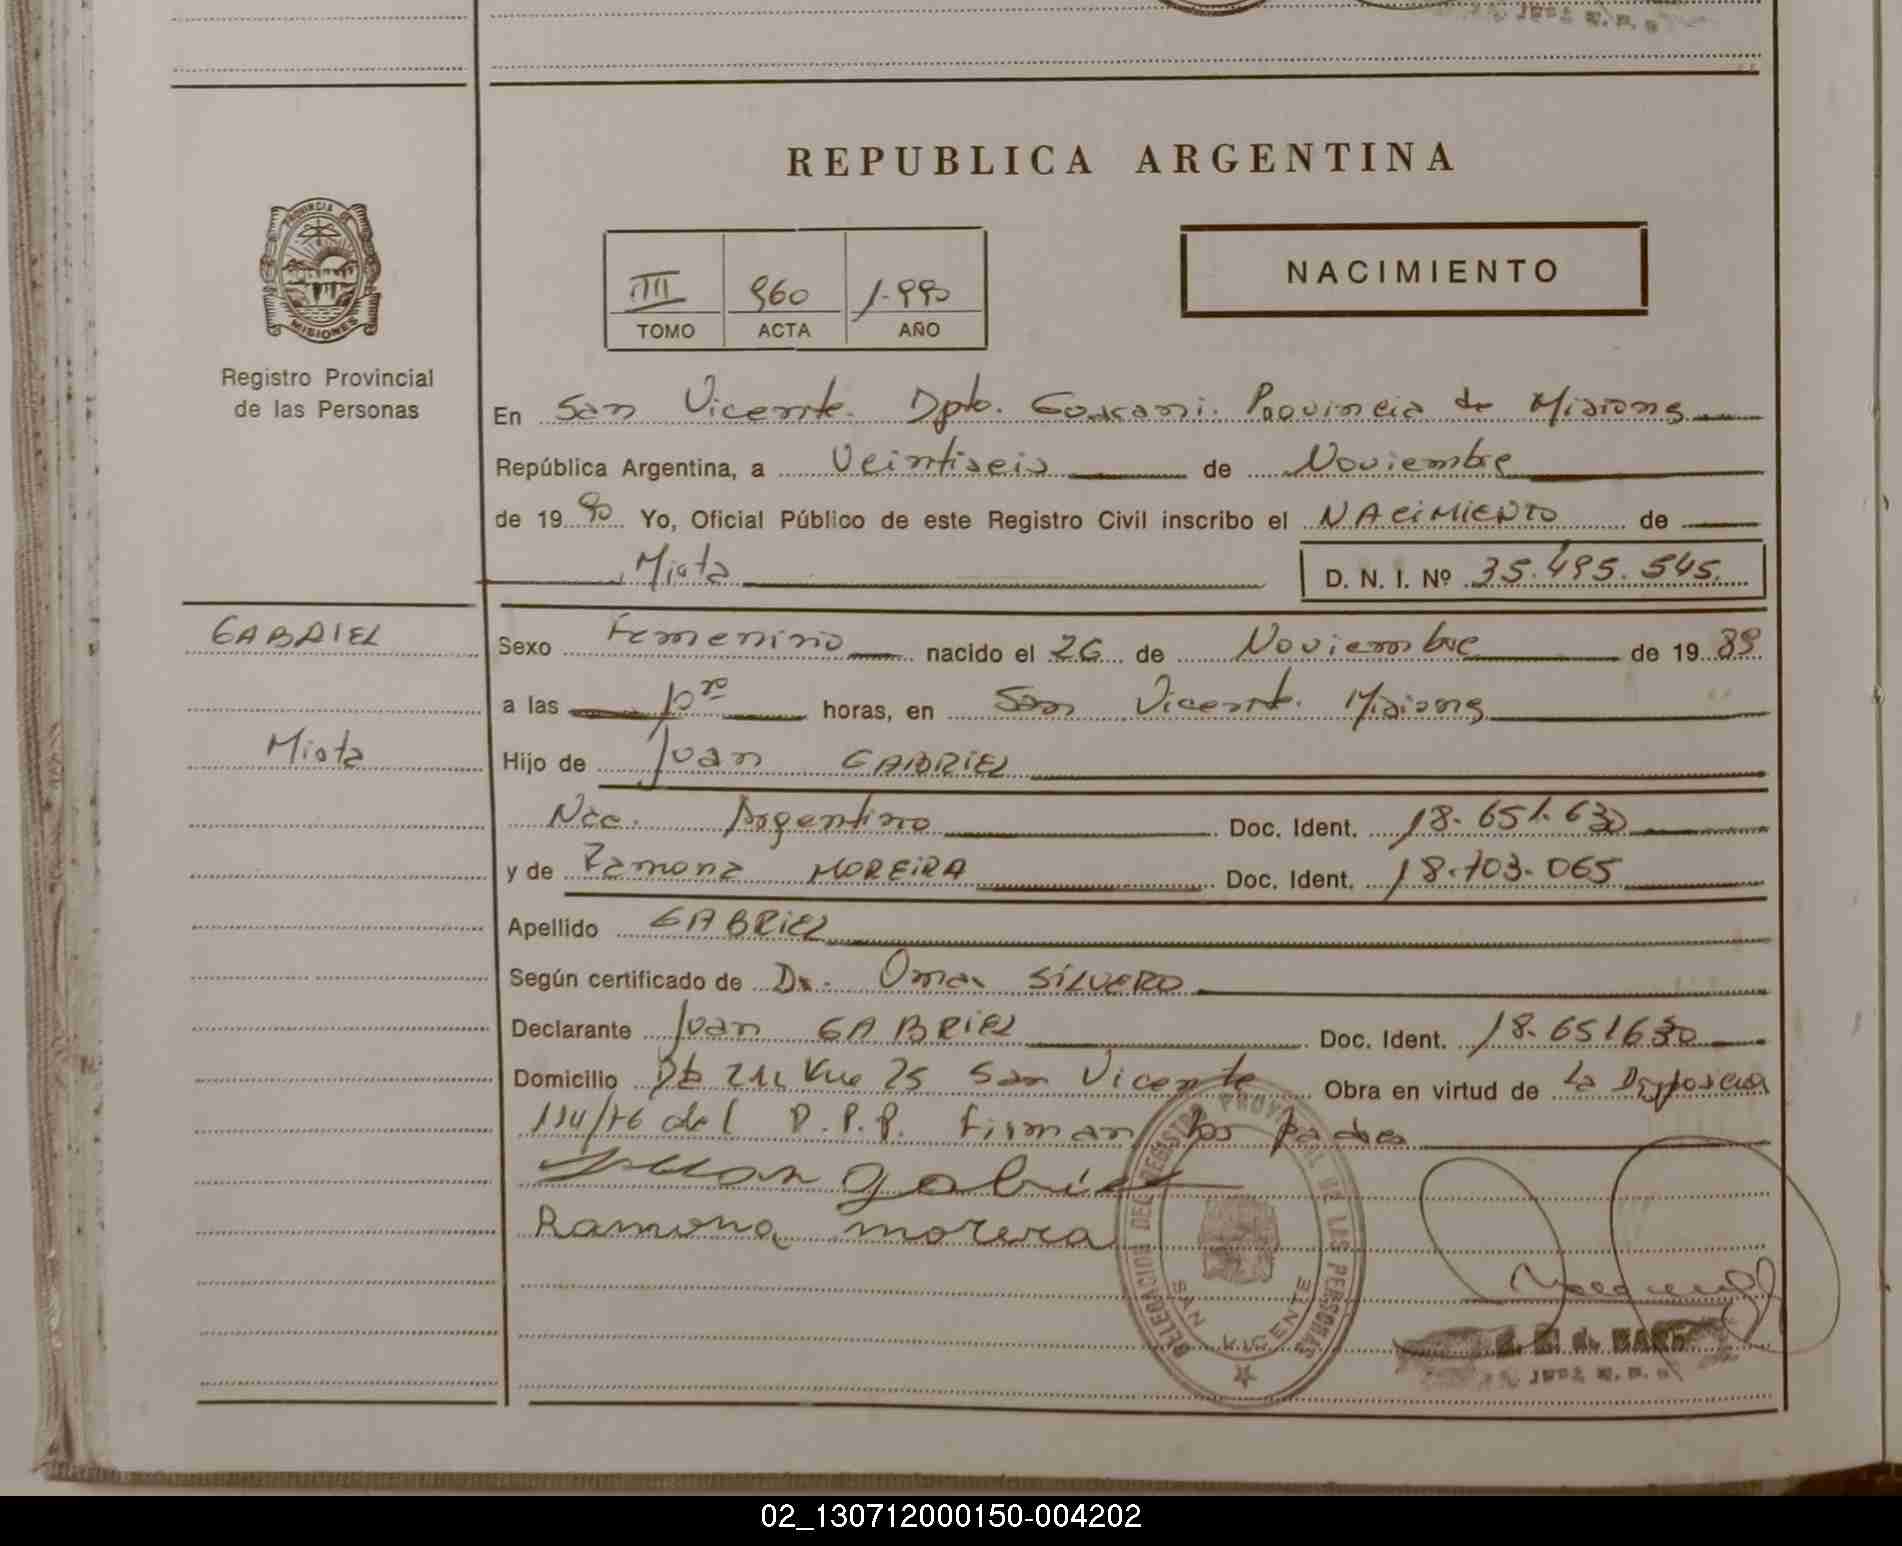 REPUBLICA ARGENTINA
PROVINCIA DE
MISIONES
Registro Provincial
de las Personas
III 960 1.990
TOMO ACTA AÑO
NACIMIENTO
En San Vicente. Dpto. Guarani. Provincia de Misiones
República Argentina, a Veintiseis de Noviembre
de 19 90 Yo, Oficial Público de este Registro Civil inscribo el NACIMIENTO de
Mirta D. N. I. Nº 35.495.545.
GABRIEL
Mirta
Sexo Femenino nacido el 26 de Noviembre de 19 89
a las 10 horas, en San Vicente. Misiones
Hijo de Juan GABRIEL
Nac. Argentino Doc. Ident. 18.651.630
y de Ramona MOREIRA Doc. Ident. 18.703.065
Apellido GABRIEL
Según certificado de Dr. Omar SILVERO
Declarante Juan GABRIEL Doc. Ident. 18.651630
Domicilio San Vicente Obra en virtud de La
114/76 del R.P.P. Firman los padres
Juan gabriel
Ramona morera
DELEGACION DEL REGISTRO PROVINCIAL DE LAS PERSONAS
SAN VICENTE
02_130712000150-004202